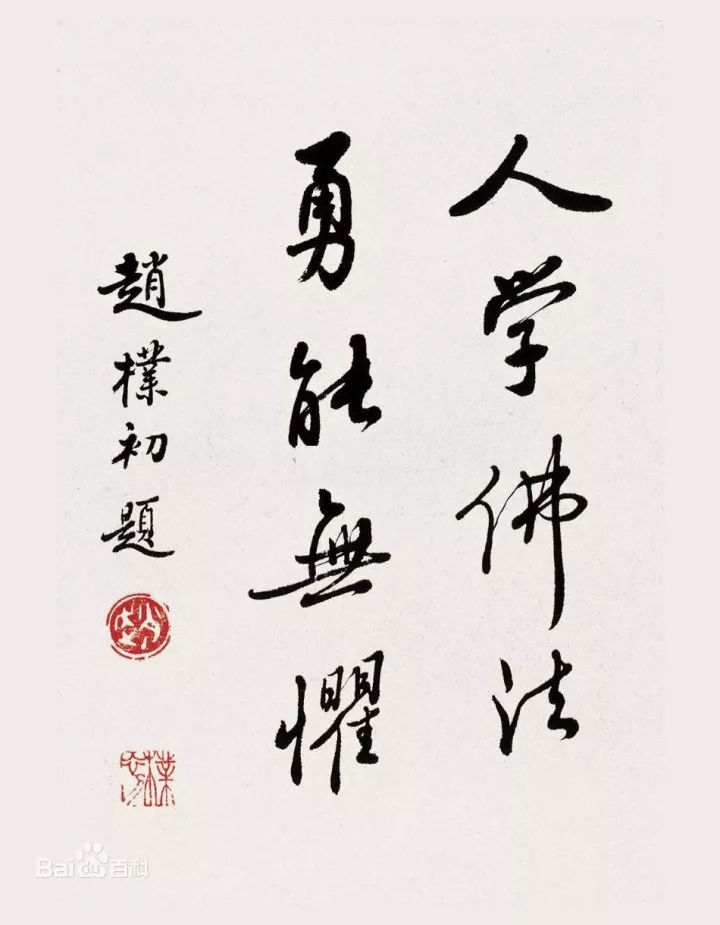 人学佛法
勇能無懼
趙樸初題
Bai百科